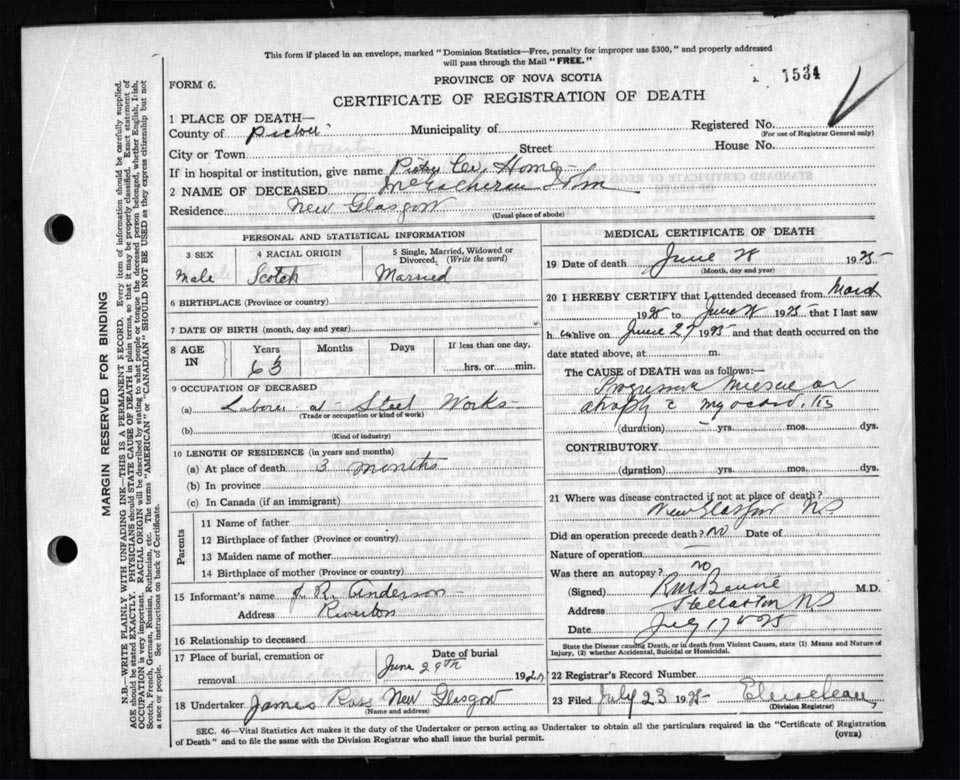 This form if placed in an envelope, marked "Dominion Statistics—Free, penalty for improper use $300," and properly addressed
will pass through the Mail "FREE."
PROVINCE OF NOVA SCOTIA
1534
FORM 6.
CERTIFICATE OF REGISTRATION OF DEATH
1 PLACE OF DEATH—
County of Pictou Municipality of Registered No.
(For use of Registrar General only)
City or Town Street House No.
If in hospital or institution, give name Pictou Co. Home
2 NAME OF DECEASED McEacheran John
Residence New Glasgow
(Usual place of abode)
PERSONAL AND STATISTICAL INFORMATION
3 SEX 4 RACIAL ORIGIN 5 Single, Married, Widowed or Divorced, (Write the word)
Male Scotch Married
6 BIRTHPLACE (Province or country)
7 DATE OF BIRTH (month, day and year)
8 AGE IN Years Months Days If less than one day,
63 hrs. or min.
9 OCCUPATION OF DECEASED
(a) Laborer at Steel Works
(Trade or occupation or kind of work)
(b)
(Kind of industry)
10 LENGTH OF RESIDENCE (in years and months)
(a) At place of death 3 months
(b) In province
(c) In Canada (if an immigrant)
Parents
11 Name of father
12 Birthplace of father (Province or country)
13 Maiden name of mother
14 Birthplace of mother (Province or country)
15 Informant's name J. R. Anderson
Address Riverton
16 Relationship to deceased
17 Place of burial, cremation or removal Date of burial
June 29th 192
18 Undertaker James Ross New Glasgow
(Name and address)
MEDICAL CERTIFICATE OF DEATH
19 Date of death June 28 1925
(Month, day and year)
20 I HEREBY CERTIFY that I attended deceased from March
1925 to June 28 1925 that I last saw
h alive on June 27 1925 and that death occurred on the
date stated above, at m.
The CAUSE of DEATH was as follows:—
Progressive muscular
atrophy c myocarditis
(duration) yrs. mos. dys.
CONTRIBUTORY
(duration) yrs. mos. dys.
21 Where was disease contracted if not at place of death?
New Glasgow NS
Did an operation precede death? no Date of
Nature of operation
Was there an autopsy? no
(Signed) M.D.
Address Stellarton NS
Date July 17 1925
State the Disease causing Death, or in death from Violent Causes, state (1) Means and Nature of
Injury, (2) whether Accidental, Suicidal or Homicidal.
22 Registrar's Record Number
23 Filed July 23 1925
(Division Registrar)
SEC. 46—Vital Statistics Act makes it the duty of the Undertaker or person acting as Undertaker to obtain all the particulars required in the "Certificate of Registration
of Death" and to file the same with the Division Registrar who shall issue the burial permit.
(OVER)
MARGIN RESERVED FOR BINDING
N.B.—WRITE PLAINLY WITH UNFADING INK—THIS IS A PERMANENT RECORD. Every item of information should be carefully supplied.
AGE should be stated EXACTLY. PHYSICIANS should STATE CAUSE OF DEATH in plain terms, so that it may be properly classified. Exact statement of
OCCUPATION is very important. RACIAL ORIGIN will be described by stating to what people or tongue the deceased person belonged, whether English, Irish,
Scotch, French, German, Russian, Ruthenian, etc. The terms "AMERICAN" or "CANADIAN" SHOULD NOT BE USED as they express citizenship but not
a race or people. See instructions on back of Certificate.